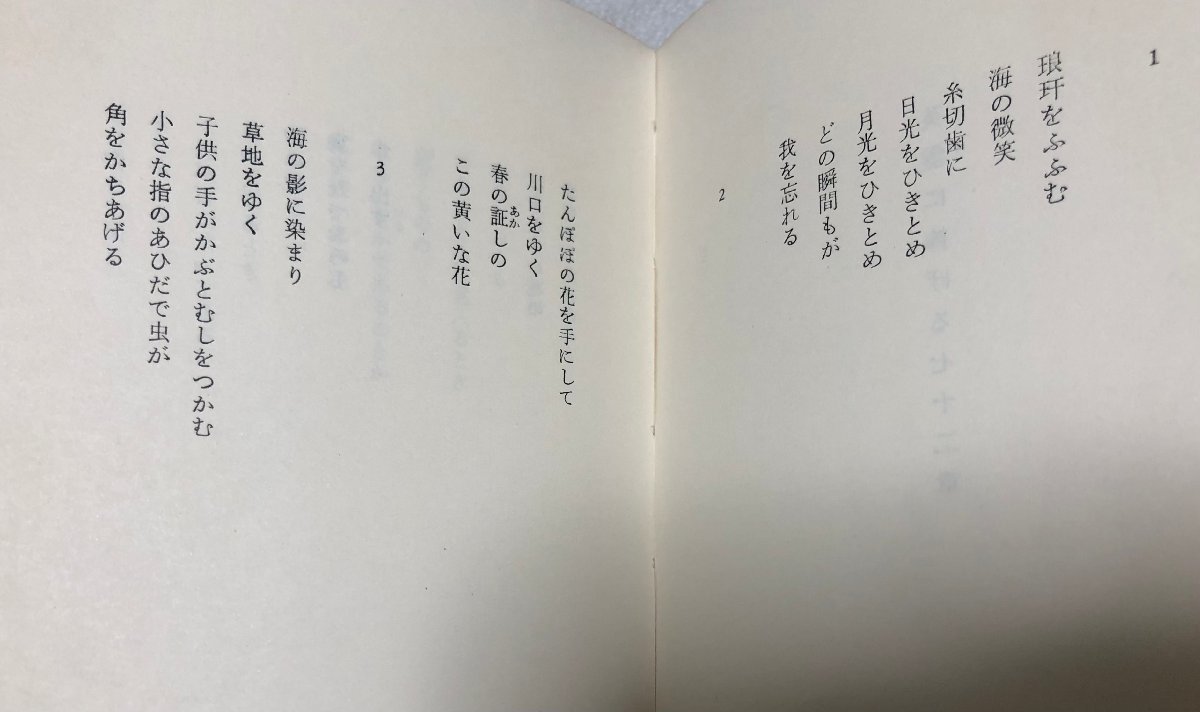 1
琅玕をふふむ
海の微笑
糸切歯に
日光をひきとめ
月光をひきとめ
どの瞬間もが
我を忘れる
2
たんぽぽの花を手にして
川口をゆく
春の証しの
あか
この黄いな花
3
海の影に染まり
草地をゆく
子供の手がかぶとむしをつかむ
小さな指のあひだで虫が
角をかちあげる